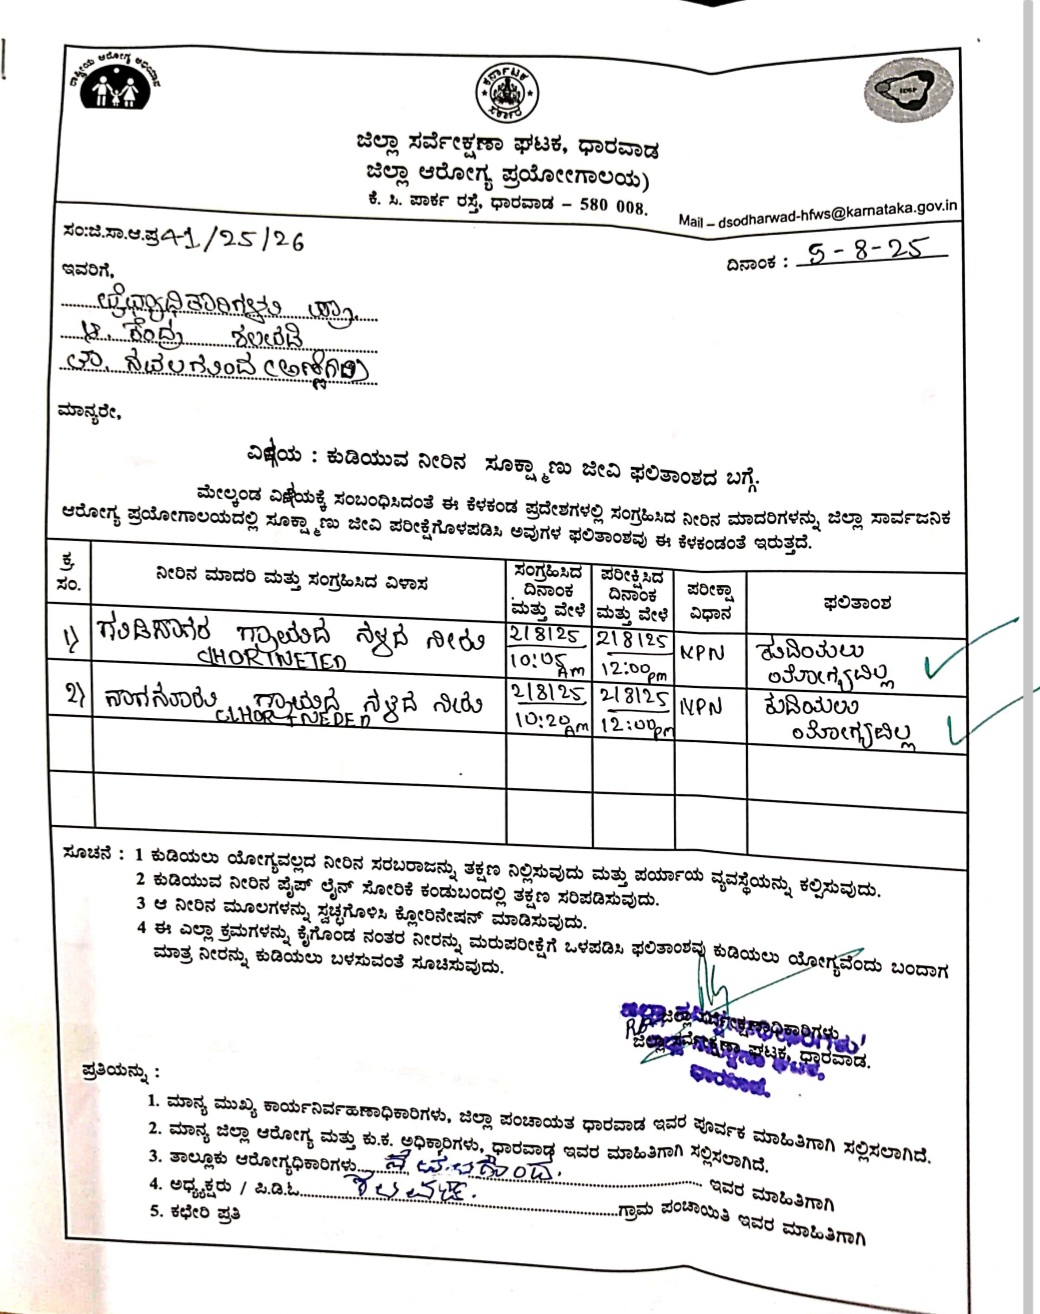 ರಾಷ್ಟ್ರೀಯ ಆರೋಗ್ಯ ಅಭಿಯಾನ
ಕರ್ನಾಟಕ ಸರ್ಕಾರ
IDSP
ಜಿಲ್ಲಾ ಸರ್ವೇಕ್ಷಣಾ ಘಟಕ, ಧಾರವಾಡ
ಜಿಲ್ಲಾ ಆರೋಗ್ಯ ಪ್ರಯೋಗಾಲಯ)
ಕೆ. ಸಿ. ಪಾರ್ಕ ರಸ್ತೆ, ಧಾರವಾಡ – 580 008.
Mail – dsodharwad-hfws@karnataka.gov.in
ಸಂ:ಜಿ.ಸಾ.ಆ.ಪ್ರ 41/25/26
ದಿನಾಂಕ : 5-8-25
ಇವರಿಗೆ,
ವೈದ್ಯಾಧಿಕಾರಿಗಳು ಪ್ರಾ.
ಆ. ಕೇಂದ್ರ ಶಲವಡಿ
ತಾ. ನವಲಗುಂದ (ಅಣ್ಣಿಗೇರಿ)
ಮಾನ್ಯರೇ,
ವಿಷಯ : ಕುಡಿಯುವ ನೀರಿನ ಸೂಕ್ಷ್ಮಾಣು ಜೀವಿ ಫಲಿತಾಂಶದ ಬಗ್ಗೆ.
ಮೇಲ್ಕಂಡ ವಿಷಯಕ್ಕೆ ಸಂಬಂಧಿಸಿದಂತೆ ಈ ಕೆಳಕಂಡ ಪ್ರದೇಶಗಳಲ್ಲಿ ಸಂಗ್ರಹಿಸಿದ ನೀರಿನ ಮಾದರಿಗಳನ್ನು ಜಿಲ್ಲಾ ಸಾರ್ವಜನಿಕ
ಆರೋಗ್ಯ ಪ್ರಯೋಗಾಲಯದಲ್ಲಿ ಸೂಕ್ಷ್ಮಾಣು ಜೀವಿ ಪರೀಕ್ಷೆಗೊಳಪಡಿಸಿ ಅವುಗಳ ಫಲಿತಾಂಶವು ಈ ಕೆಳಕಂಡಂತೆ ಇರುತ್ತದೆ.
ಕ್ರ ಸಂ. ನೀರಿನ ಮಾದರಿ ಮತ್ತು ಸಂಗ್ರಹಿಸಿದ ವಿಳಾಸ ಸಂಗ್ರಹಿಸಿದ ದಿನಾಂಕ ಮತ್ತು ವೇಳೆ ಪರೀಕ್ಷಿಸಿದ ದಿನಾಂಕ ಮತ್ತು ವೇಳೆ ಪರೀಕ್ಷಾ ವಿಧಾನ ಫಲಿತಾಂಶ
1) ಗ್ರಾಮದ ನಳ್ಳದ ನೀರು 2/8/25 2/8/25 MPN ಕುಡಿಯಲು
CHORINETED 10:05 AM 12:00 PM ಯೋಗ್ಯವಿಲ್ಲ
2) ಗ್ರಾಮದ ನಳ್ಳದ ನೀರು 2/8/25 2/8/25 MPN ಕುಡಿಯಲು
10:20 AM 12:00 PM ಯೋಗ್ಯವಿಲ್ಲ
ಸೂಚನೆ : 1 ಕುಡಿಯಲು ಯೋಗ್ಯವಲ್ಲದ ನೀರಿನ ಸರಬರಾಜನ್ನು ತಕ್ಷಣ ನಿಲ್ಲಿಸುವುದು ಮತ್ತು ಪರ್ಯಾಯ ವ್ಯವಸ್ಥೆಯನ್ನು ಕಲ್ಪಿಸುವುದು.
2 ಕುಡಿಯುವ ನೀರಿನ ಪೈಪ್ ಲೈನ್ ಸೋರಿಕೆ ಕಂಡುಬಂದಲ್ಲಿ ತಕ್ಷಣ ಸರಿಪಡಿಸುವುದು.
3 ಆ ನೀರಿನ ಮೂಲಗಳನ್ನು ಸ್ವಚ್ಛಗೊಳಿಸಿ ಕ್ಲೋರಿನೇಷನ್ ಮಾಡಿಸುವುದು.
4 ಈ ಎಲ್ಲಾ ಕ್ರಮಗಳನ್ನು ಕೈಗೊಂಡ ನಂತರ ನೀರನ್ನು ಮರುಪರೀಕ್ಷೆಗೆ ಒಳಪಡಿಸಿ ಫಲಿತಾಂಶವು ಕುಡಿಯಲು ಯೋಗ್ಯವೆಂದು ಬಂದಾಗ
ಮಾತ್ರ ನೀರನ್ನು ಕುಡಿಯಲು ಬಳಸುವಂತೆ ಸೂಚಿಸುವುದು.
ಜಿಲ್ಲಾ ಸರ್ವೇಕ್ಷಣಾಧಿಕಾರಿಗಳು
ಜಿಲ್ಲಾ ಸರ್ವೇಕ್ಷಣಾ ಘಟಕ, ಧಾರವಾಡ.
ಧಾರವಾಡ.
ಪ್ರತಿಯನ್ನು :
1. ಮಾನ್ಯ ಮುಖ್ಯ ಕಾರ್ಯನಿರ್ವಹಣಾಧಿಕಾರಿಗಳು, ಜಿಲ್ಲಾ ಪಂಚಾಯತ ಧಾರವಾಡ ಇವರ ಪೂರ್ವಕ ಮಾಹಿತಿಗಾಗಿ ಸಲ್ಲಿಸಲಾಗಿದೆ.
2. ಮಾನ್ಯ ಜಿಲ್ಲಾ ಆರೋಗ್ಯ ಮತ್ತು ಕು.ಕ. ಅಧಿಕಾರಿಗಳು, ಧಾರವಾಡ ಇವರ ಮಾಹಿತಿಗಾಗಿ ಸಲ್ಲಿಸಲಾಗಿದೆ.
3. ತಾಲ್ಲೂಕು ಆರೋಗ್ಯಧಿಕಾರಿಗಳು ನವಲಗುಂದ. ಇವರ ಮಾಹಿತಿಗಾಗಿ
4. ಅಧ್ಯಕ್ಷರು / ಪಿ.ಡಿ.ಓ ಶಲವಡಿ. ಗ್ರಾಮ ಪಂಚಾಯಿತಿ ಇವರ ಮಾಹಿತಿಗಾಗಿ
5. ಕಛೇರಿ ಪ್ರತಿ